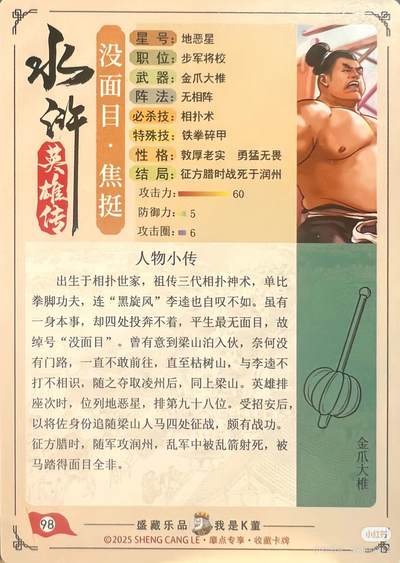 水浒
英雄传
没面目·焦挺
星号：地恶星
职位：步军将校
武器：金爪大椎
阵法：无相阵
必杀技：相扑术
特殊技：铁拳碎甲
性格：敦厚老实 勇猛无畏
结局：征方腊时战死于润州
攻击力：60
防御力：5
攻击圈：6
人物小传
出生于相扑世家，祖传三代相扑神术，单比
拳脚功夫，连“黑旋风”李逵也自叹不如。虽有
一身本事，却四处投奔不着，平生最无面目，故
绰号“没面目”。曾有意到梁山泊入伙，奈何没
有门路，一直不敢前往，直至枯树山，与李逵不
打不相识，随之夺取凌州后，同上梁山。英雄排
座次时，位列地恶星，排第九十八位。受招安后，
以将佐身份追随梁山人马四处征战，颇有战功。
征方腊时，随军攻润州，乱军中被乱箭射死，被
马踏得面目全非。
金爪大椎
98
盛藏乐品 我是K董
©2025 SHENG CANG LE·摩点专享·收藏卡牌
小红书